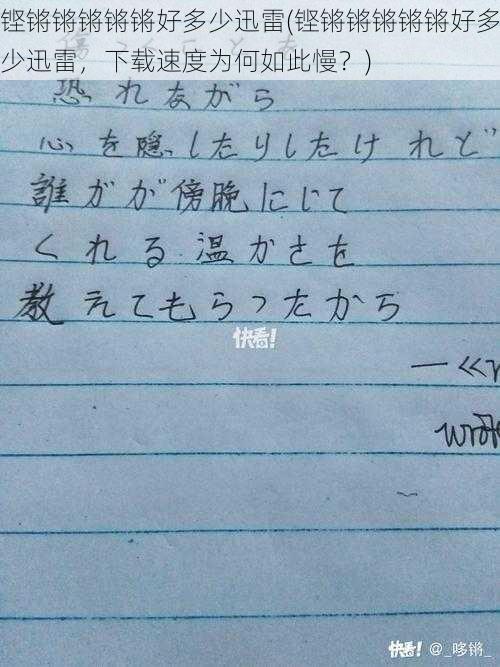 铿锵锵锵锵锵好多少迅雷(铿锵锵锵锵锵好多
少迅雷，下载速度为何如此慢？)
恐れながら
心を隠したりしたけれど
誰がが傍晩にじて
くれる温かさを
教えてもらったから
快看!
—《
快看! @_哆锵_